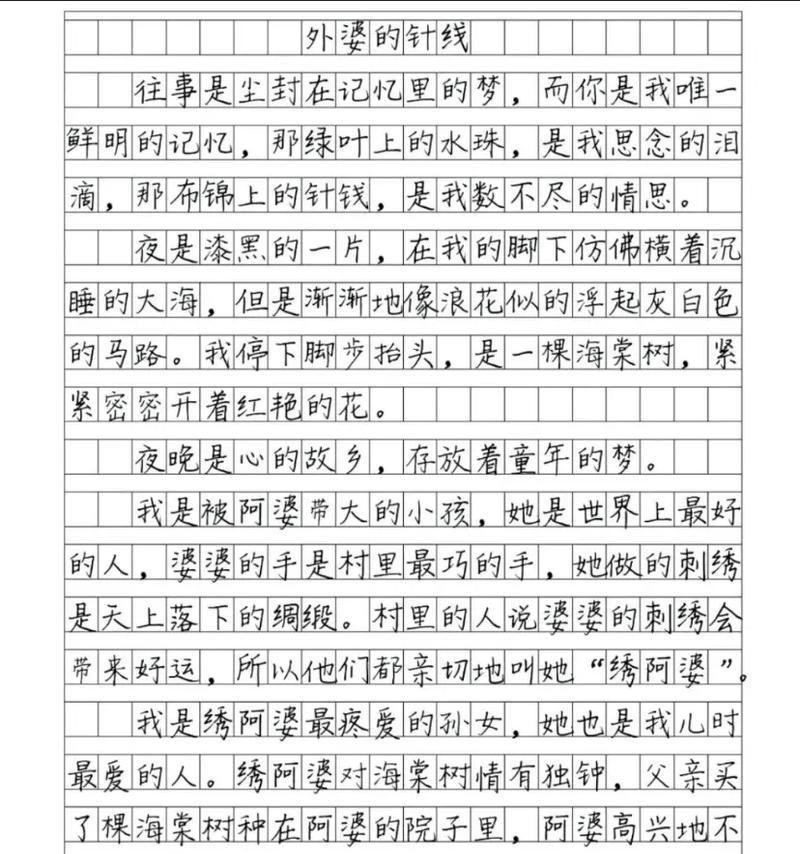 外婆的针线
往事是尘封在记忆里的梦，而你是我唯一
鲜明的记忆，那绿叶上的水珠，是我思念的泪
滴，那布锦上的针钱，是我数不尽的情思。
夜是漆黑的一片，在我的脚下仿佛横着沉
睡的大海，但是渐渐地像浪花似的浮起灰白色
的马路。我停下脚步抬头，是一棵海棠树，紧
紧密密开着红艳的花。
夜晚是心的故乡，存放着童年的梦。
我是被阿婆带大的小孩，她是世界上最好
的人，婆婆的手是村里最巧的手，她做的刺绣
是天上落下的绸缎。村里的人说婆婆的刺绣会
带来好运，所以他们都亲切地叫她“绣阿婆”。
我是绣阿婆最疼爱的孙女，她也是我儿时
最爱的人。绣阿婆对海棠树情有独钟，父亲买
了棵海棠树种在阿婆的院子里，阿婆高兴地不